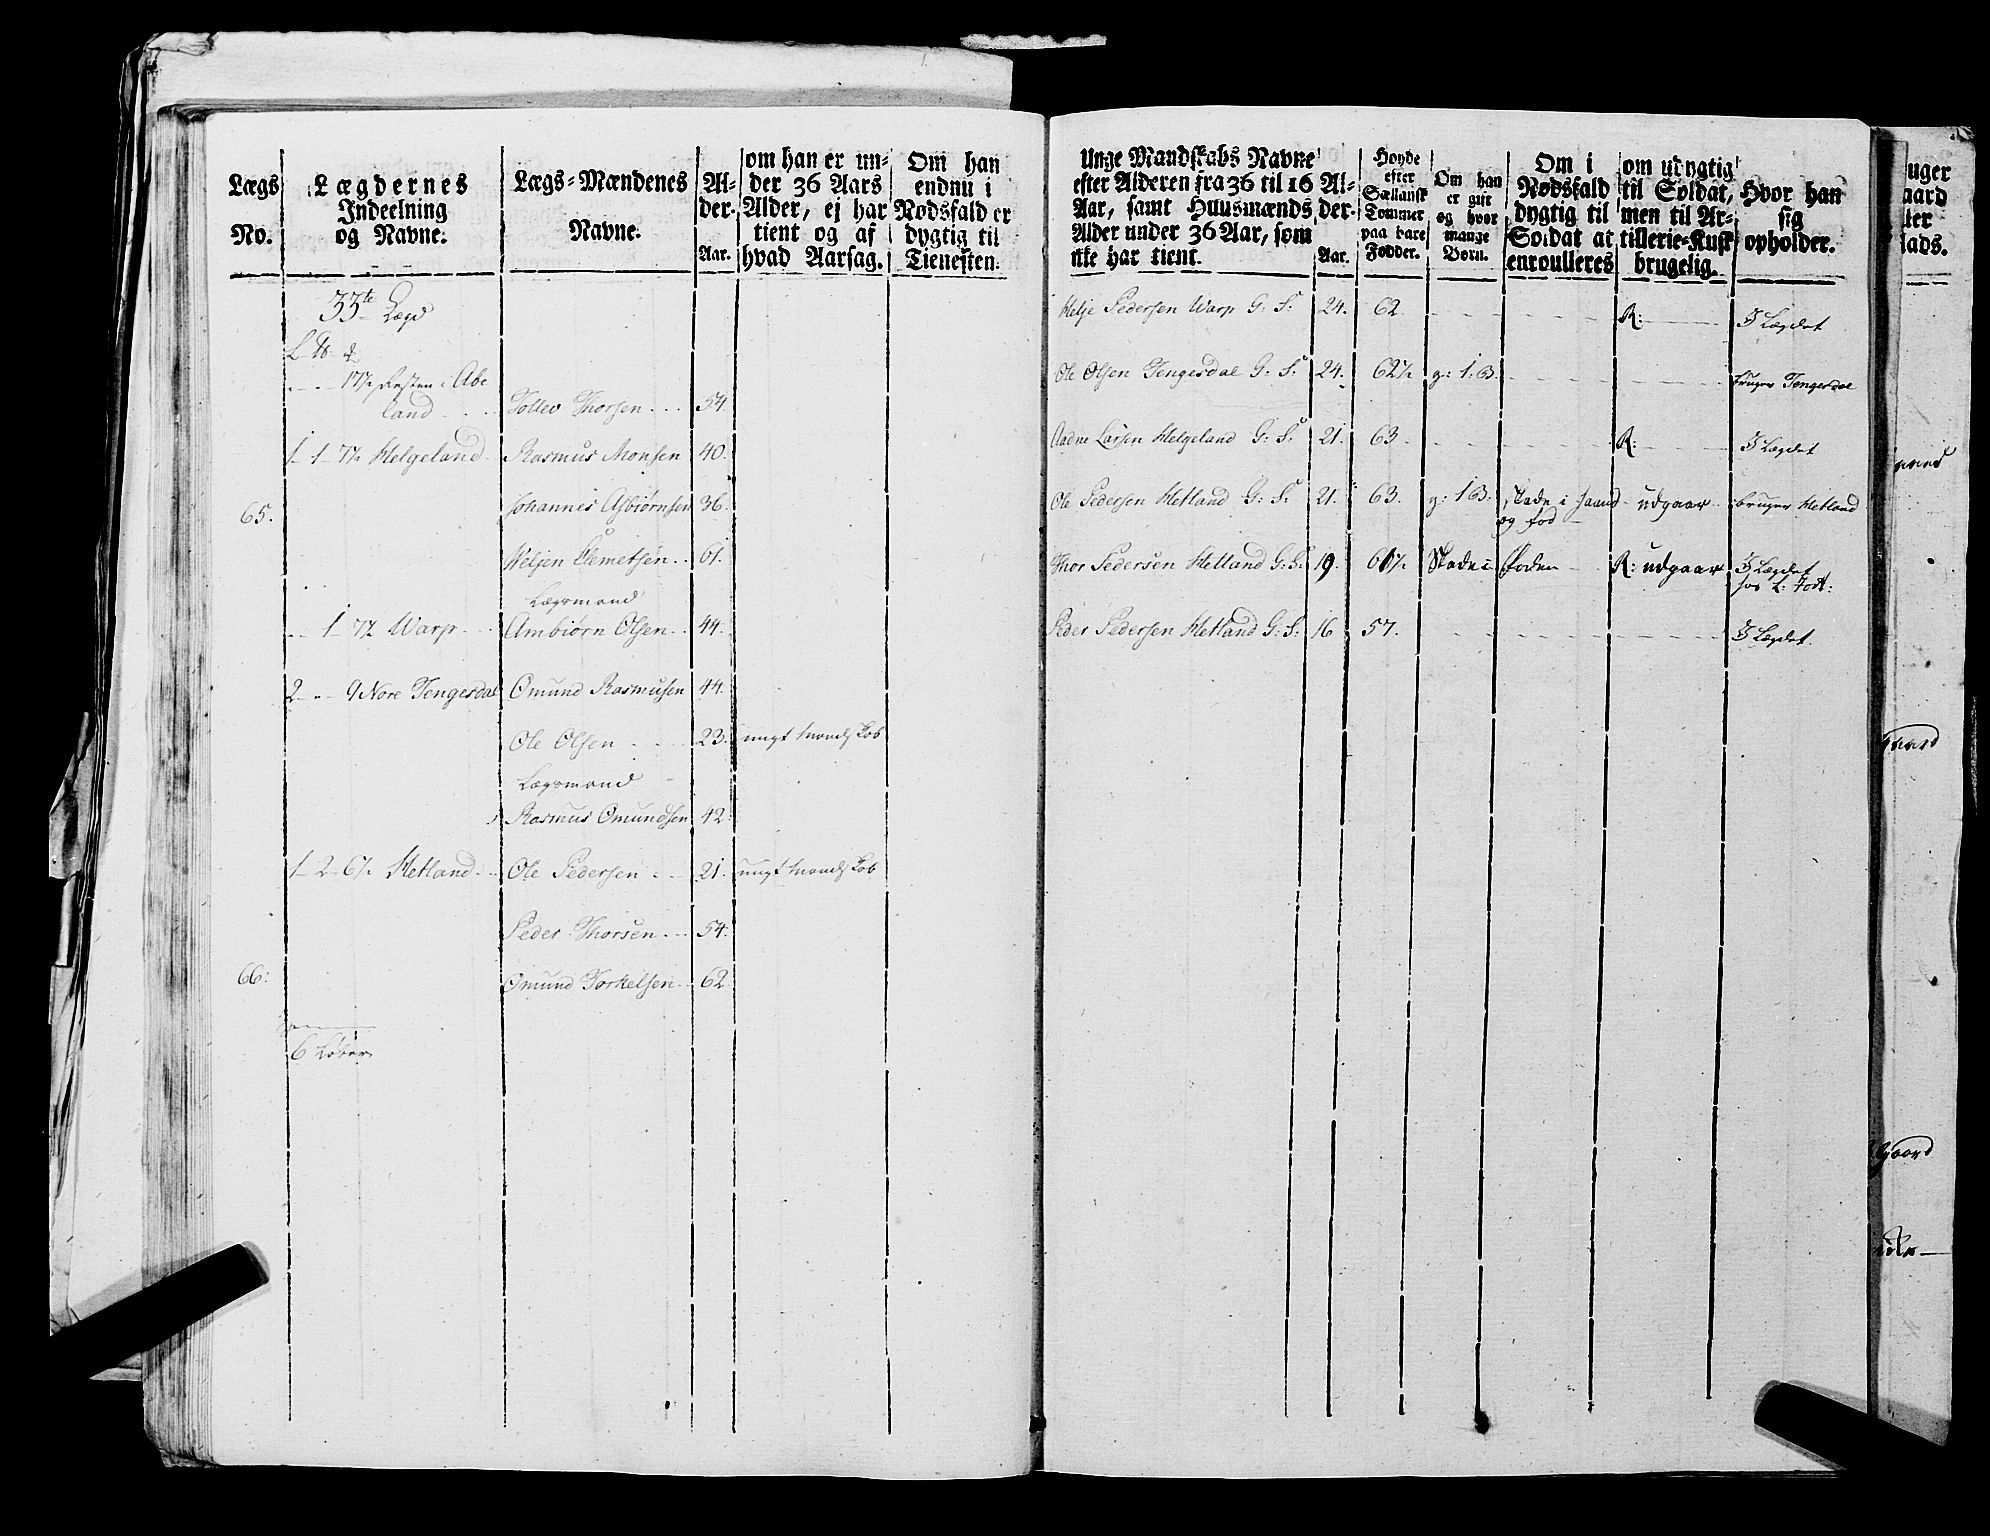 Lægs No.
Lægdernes Indeelning og Navne.
Lægs-Mændenes Navne.
Alder. Aar.
om han er under 36 Aars Alder, ej har tient og af hvad Aarsag.
Om han endnu i Nødsfald er dygtig til Tienesten.
33te Lægd
L
17½ Resten i Abe
land Tollev Thorsen 54.
1 1 7½ Helgeland Rasmus Monsen 40.
65. Johannes Asbiørnsen 36.
Heljen Clemetsen 61.
Lægsmand
1 7½ Warp Ambiørn Olsen 44.
2 9 Nore Tengesdal Omund Rasmusen 44.
Ole Olsen 23. ungt Mandskab
Lægsmand
Rasmus Omundsen 42
1 2 6½ Hetland Ole Pedersen 21. ungt Mandskab
Peder Thorsen 54.
66: Omund Torkelsen 62
6 Løber
Unge Mandskabs Navne efter Alderen fra 36 til 16 Aar, samt Huusmænds Alder under 36 Aar, som ikke har tient.
Alder. Aar.
Høyde efter Sællansk Tommer paa bare Fødder.
Om han er gift og hvor mange Børn.
Om i Nødsfald dygtig til Soldat at enroulleres
om udygtig til Soldat, men til Artillerie-Kusk brugelig.
Hvor han sig opholder.
Helje Pedersen Warp G: S: 24. 62. R: I Lægdet
Ole Olsen Tengesdal G: S: 24. 62½ g: 1. B. bruger Tengesdal
Aadne Larsen Helgeland G: S: 21. 63. R: I Lægdet
Ole Pedersen Hetland G: S: 21. 63. g: 1 B. skade i haand og fod udgaar bruger Hetland
Thor Pedersen Hetland G: S: 19. 61½ Skade i Foden R: udgaar I Lægdet
Peder Pedersen Hetland G: S: 16 57. I Lægdet.
uger
aard
ler
ads.
Gaard